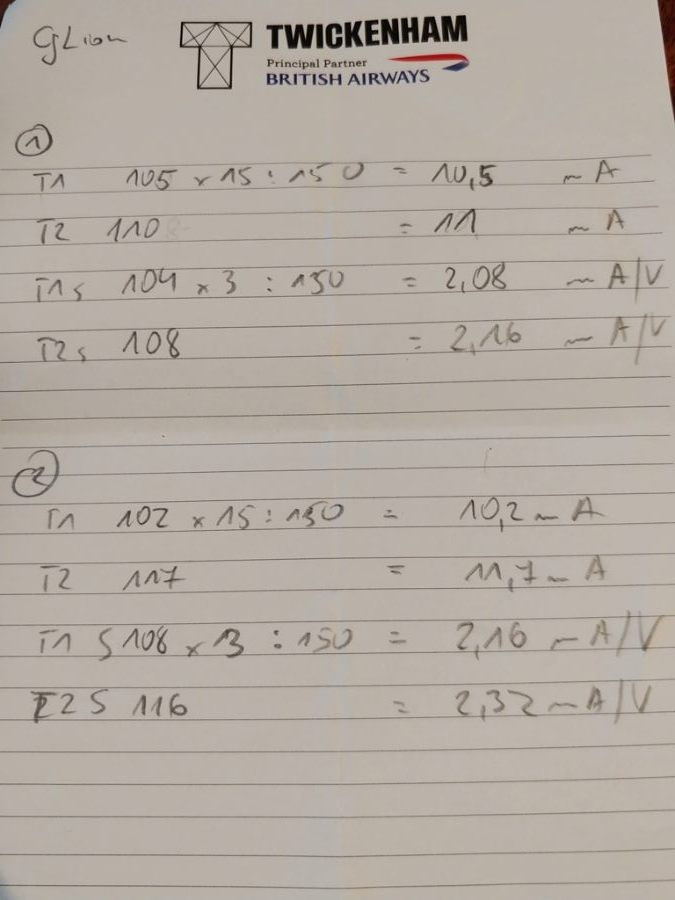 GLion
TWICKENHAM
Principal Partner
BRITISH AIRWAYS
1
T1 105 x 15 : 150 = 10,5 mA
T2 110 = 11 mA
T1s 104 x 3 : 150 = 2,08 mA/V
T2s 108 = 2,16 mA/V
2
T1 102 x 15 : 150 = 10,2 mA
T2 117 = 11,7 mA
T1 S 108 x 3 : 150 = 2,16 mA/V
T2 S 116 = 2,32 mA/V